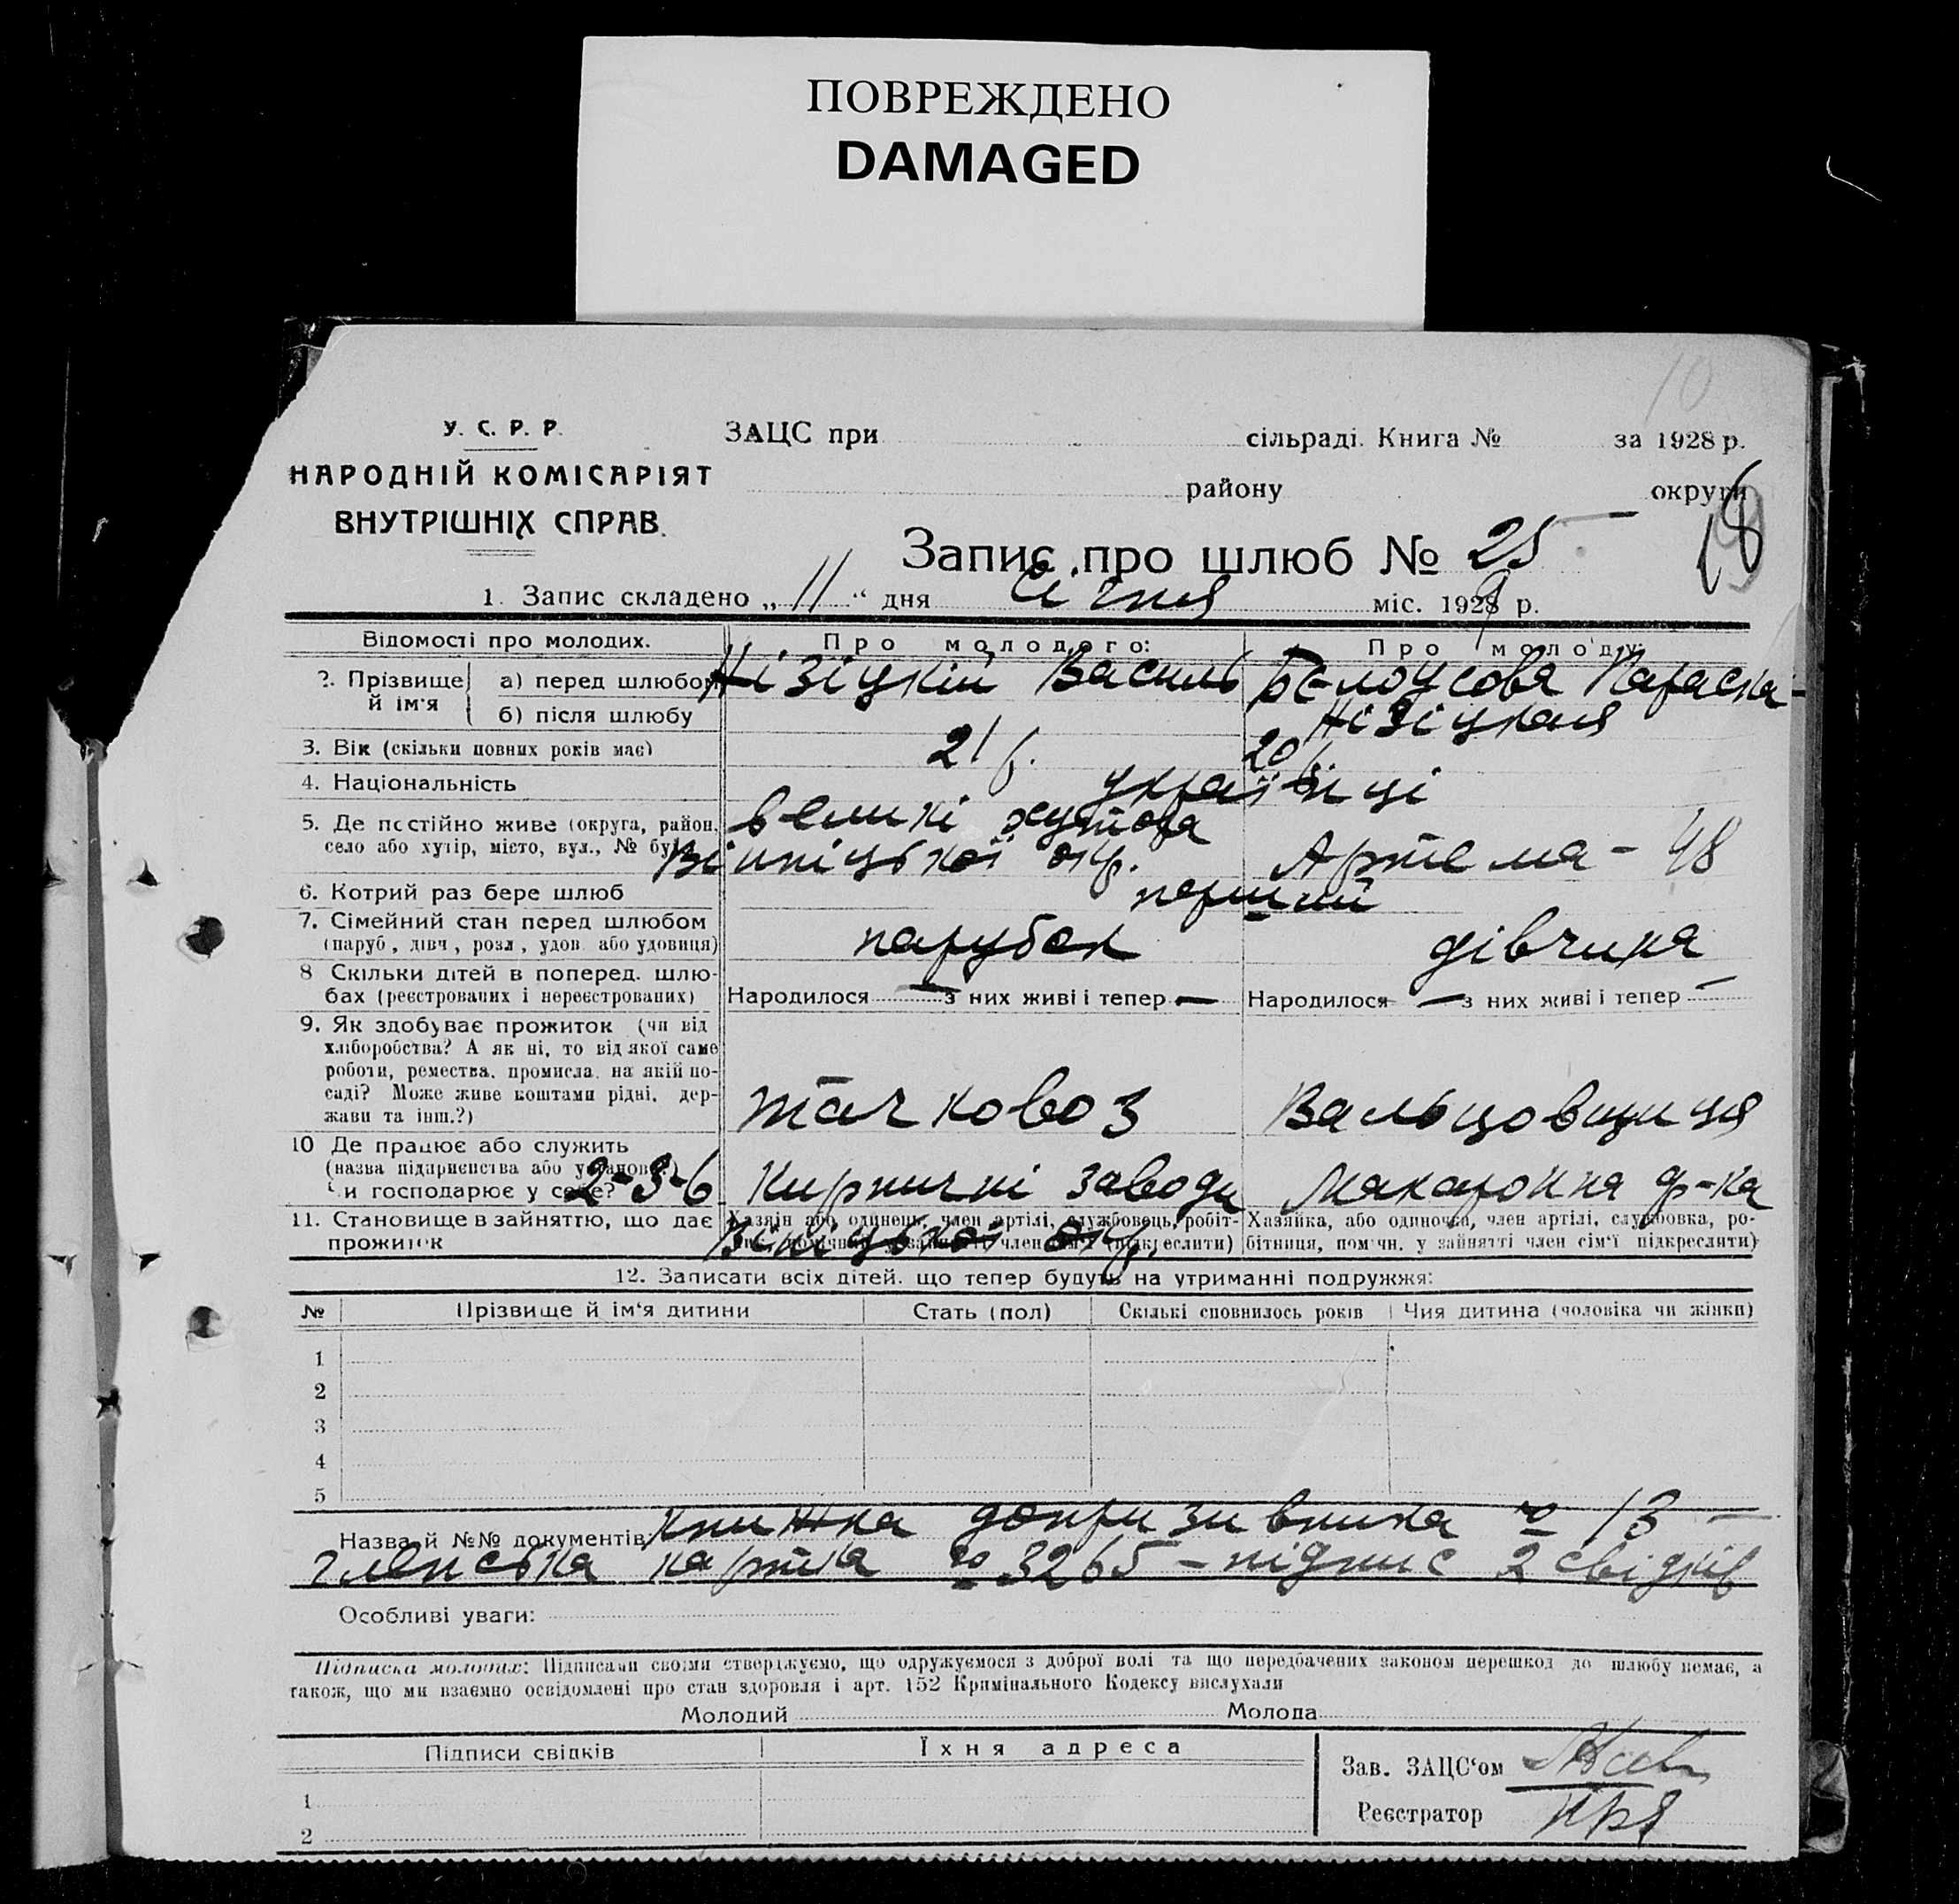 ПОВРЕЖДЕНО
DAMAGED
10
У. С. Р. Р.
НАРОДНІЙ КОМІСАРІЯТ
ВНУТРІШНІХ СПРАВ.
ЗАЦС при сільраді. Книга № за 1928 р.
району округи
18
Запис про шлюб № 25
1. Запис складено „11“ дня Січня міс. 1929 р.
Відомості про молодих. Про молодого: Про молоду:
2. Прізвище й ім'я а) перед шлюбом Нізіцкій Василь Белоусова Параска
б) після шлюбу Нізіцкая
3. Вік (скільки повних років має) 21 р. 20 р.
4. Національність українці
5. Де постійно живе (округа, район, великі хутора
село або хутір, місто, вул., № буд. Вінніцької окр. Артема - 48
6. Котрий раз бере шлюб перший
7. Сімейний стан перед шлюбом
(паруб., дівч., розл., удов. або удовиця) парубок дівчина
8 Скільки дітей в поперед. шлю-
бах (реєстрованих і нереєстрованих) Народилося — з них живі і тепер — Народилося — з них живі і тепер —
9. Як здобуває прожиток (чи від
хліборобства? А як ні, то від якої саме
роботи, ремества, промисла, на якій по-
саді? Може живе коштами рідні, дер-
жави та інш.?) тачковоз Вальцовщиця
10 Де працює або служить
(назва підприємства або установи.)
Чи господарює у себе? 2-3-6 Кирпичні заводи Макаронна ф-ка
11. Становище в зайняттю, що дає прожиток
Хазяїн або одинець, член артілі, службовець, робіт-
член (підкреслити)
Вініцької окр.
Хазяйка, або одиночка, член артілі, службовка, ро-
бітниця, помічн. у зайнятті член сім'ї підкреслити)
12. Записати всіх дітей, що тепер будуть на утриманні подружжя:
№ Прізвище й ім'я дитини Стать (пол) Скількі сповнилось років Чия дитина (чоловіка чи жінки)
1
2
3
4
5
Назва й №№ документів Книжка допризивника № 13 —
членська картка № 3265 - підпис 2 свідків
Особливі уваги:
Підписка молодих: Підписами своїми стверджуємо, що одружуємося з доброї волі та що передбачених законом перешкод до шлюбу немає, а
також, що ми взаємно освідомлені про стан здоровля і арт. 152 Кримінального Кодексу вислухали
Молодий Молода
Підписи свідків Їхня адреса
1
2
Зав. ЗАЦС'ом
Реєстратор